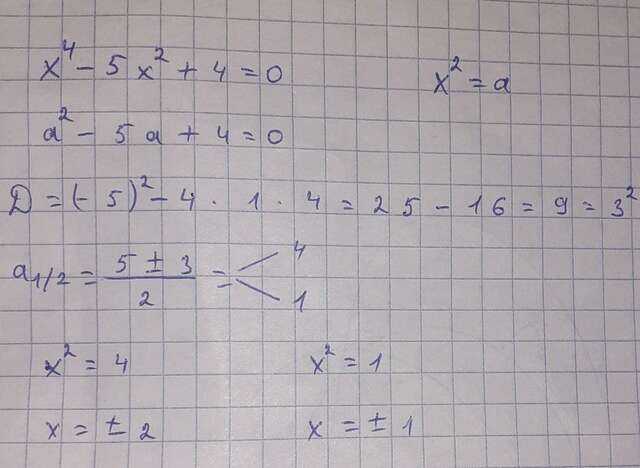 x⁴ - 5x² + 4 = 0    x² = a
a² - 5a + 4 = 0
D = (-5)² - 4 · 1 · 4 = 25 - 16 = 9 = 3²
a₁/₂ = (5 ± 3)/2 = < 4 1
x² = 4    x² = 1
x = ± 2    x = ± 1